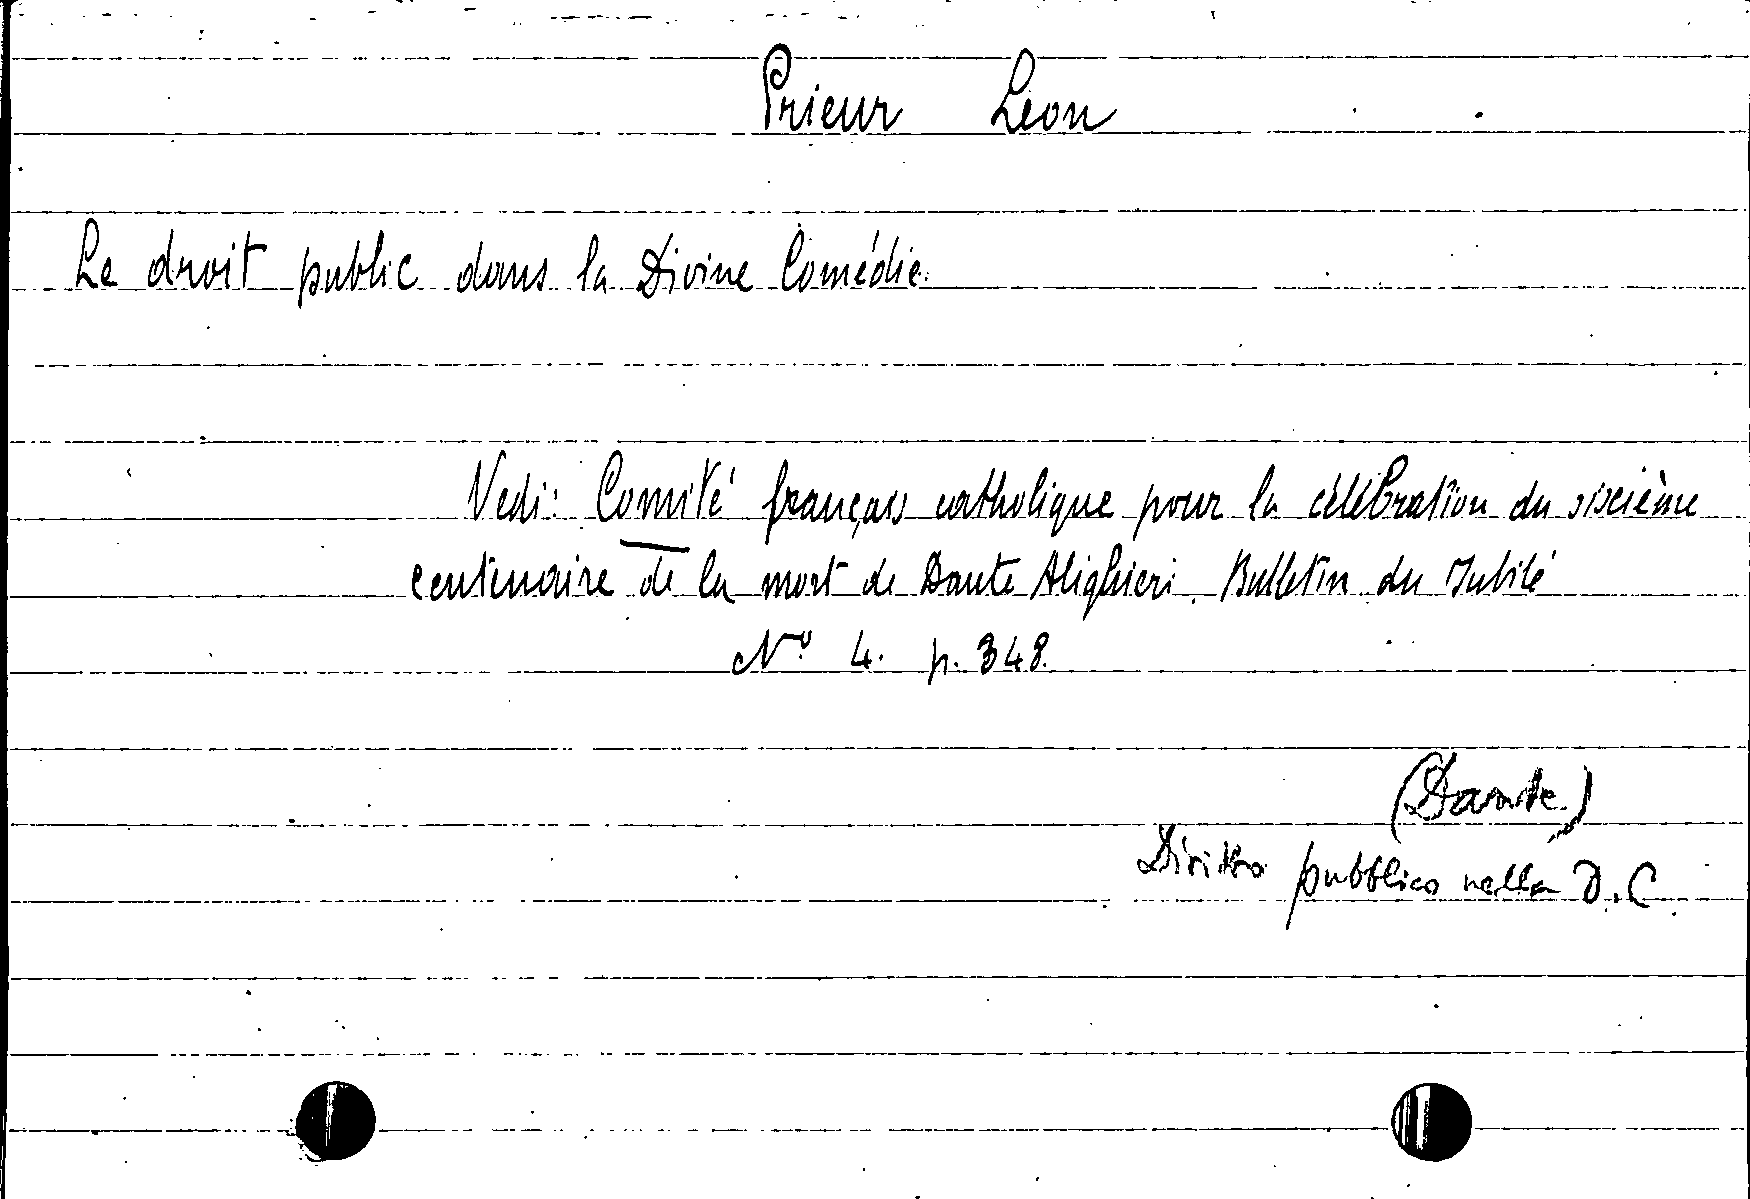 Prieur Léon
Le droit public dans la Divine Comédie.
Vedi: Comité français catholique pour la célébration du sixième
centenaire de la mort de Dante Alighieri. Bulletin du Jubilé
Nº 4. p. 348.
(Dante)
Diritto pubblico nella D.C.